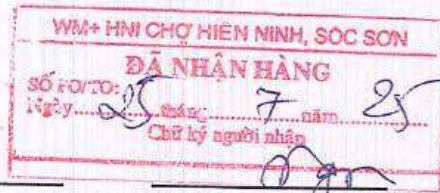 WM+ HNI CHỢ HIỀN NINH, SÓC SƠN
ĐÃ NHẬN HÀNG
SỐ PO/TO:
Ngày 25 tháng 7 năm 25
Chữ ký người nhận